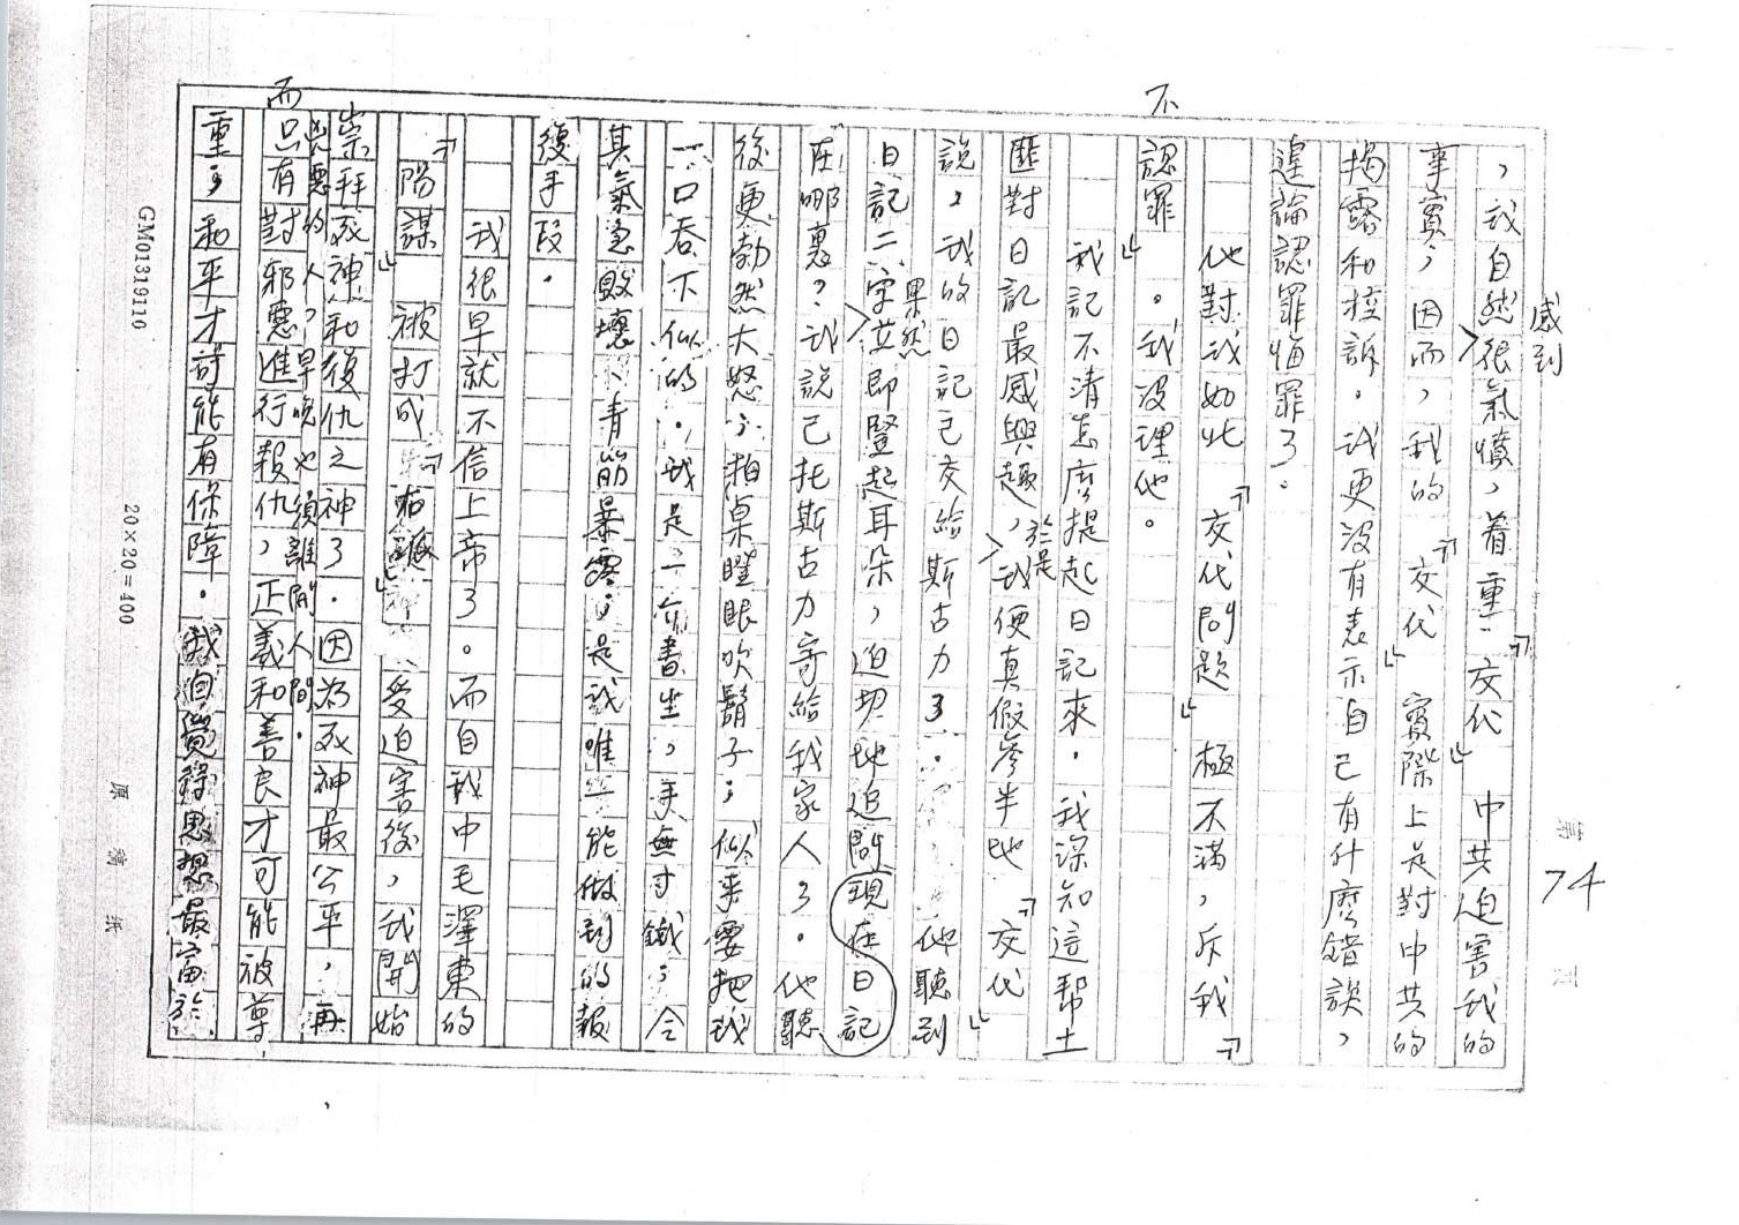 第 74 頁
，我自然感到很氣憤，着重『交代』中共迫害我的
事實，因而，我的『交代』實際上是對中共的
揭露和控訴。我更沒有表示自己有什麼錯誤，
遑論認罪悔罪了。
他對我如此『交代問題』極不滿，斥我『不
認罪』。我沒理他。
我記不清怎麼提起日記來。我深知這幫土
匪對日記最感興趣，於是我便真假參半地『交代』
說，我的日記已交給斯古力了。他聽到
日記二字果然立即豎起耳朵，迫切地追問現在日記
在哪裏？我說已托斯古力寄給我家人了。他聽
後更勃然大怒；拍桌瞠眼吹鬍子；似乎要把我
一口吞下似的。我是一介書生，手無寸鐵；令
其氣急敗壞、青筋暴露；是我唯一能做到的報
復手段。
我很早就不信上帝了。而自我中毛澤東的
『陽謀』被打成『右派』受迫害後，我開始
崇拜死神和復仇之神了。因為死神最公平，再
兇惡的人，早晚也須離開人間。
而只有對邪惡進行報仇，正義和善良才可能被尊
重；和平才可能有保障。我自覺得思想最富於
GM01319110
20×20=400
原稿紙